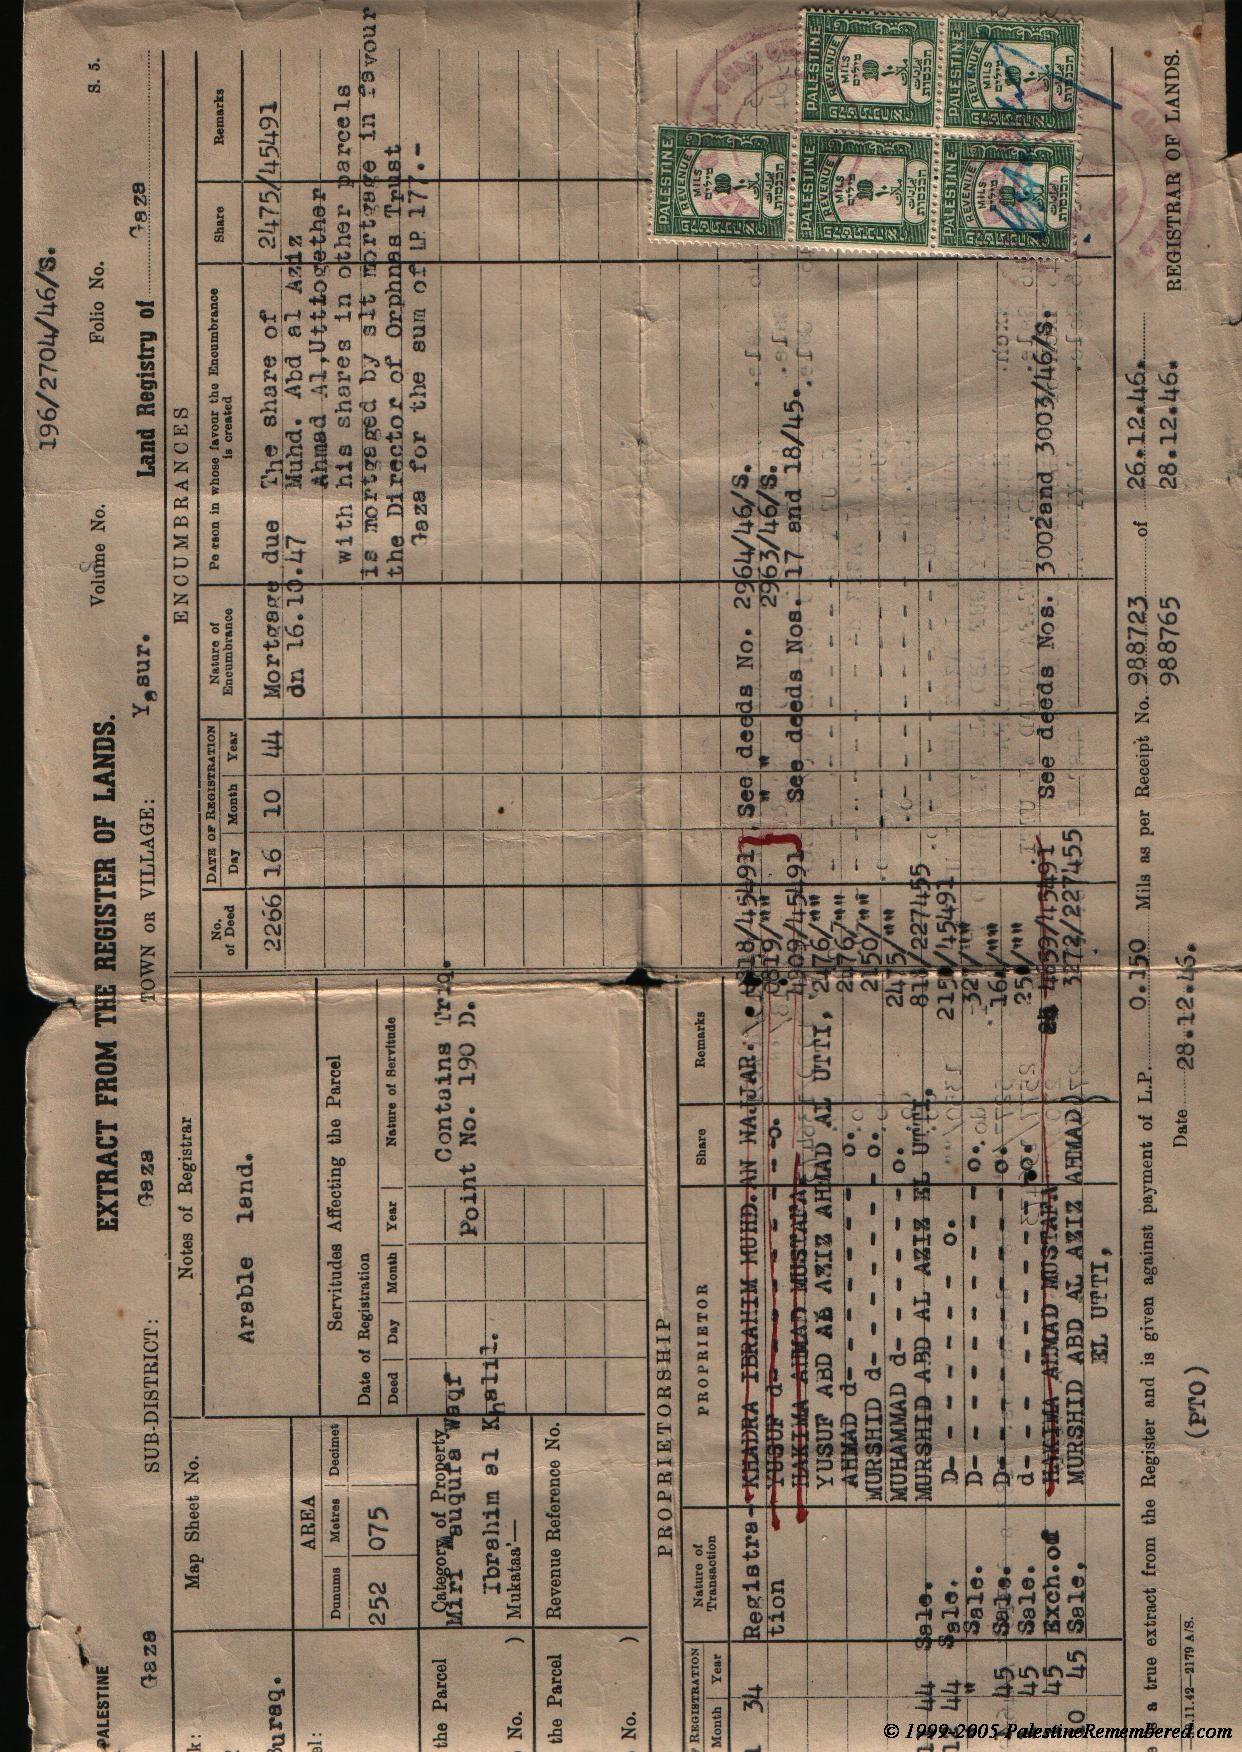 196/2704/46/S.
PALESTINE
EXTRACT FROM THE REGISTER OF LANDS.
Volume No.
Folio No.
S. 5.
Gaza
SUB-DISTRICT:
Gaza
TOWN OR VILLAGE:
Yasur.
Land Registry of Gaza
Buraq.
Map Sheet No.
AREA
Dunums Metres Decimet
252 075
Notes of Registrar
Arable land.
Servitudes Affecting the Parcel
Date of Registration
Deed Day Month Year
Nature of Servitude
Contains Trig.
Point No. 190 D.
the Parcel
No. )
Category of Property
Miri Mauqufa Waqf
Ibrahim al Khalil.
Mukataa'—
the Parcel
No. )
Revenue Reference No.
ENCUMBRANCES
No. of Deed
DATE OF REGISTRATION
Day Month Year
Nature of Encumbrance
Person in whose favour the Encumbrance is created
Share
Remarks
2266 16 10 44 Mortgage due The share of 2475/45491
on 16.10.47 Muhd. Abd al Aziz
Ahmad Al,Uttitogether
with his shares in other parcels
is mortgaged by slt mortgage in favour
the Director of Orphnas Trust
Gaza for the sum of LP.177.-
PROPRIETORSHIP
REGISTRATION
Month Year
Nature of Transaction
PROPRIETOR
Share
Remarks
34 Registra- KHADRA IBRAHIM MUHD.AN NAJJAR. 818/45491 See deeds No. 2964/46/S.
tion YUSUF d- - - - - - -o. 0819/"" " " 2963/46/S.
HAKIMA AHMAD MUSTAFA 4909/45491 See deeds Nos. 17 and 18/45.
YUSUF ABD AL AZIZ AHMAD AL UTTI, 2476/""
AHMAD d- - - - - - - o. 2476/""
MURSHID d- - - - - - - o. 2150/""
MUHAMMAD d- - - - - - o. 2475/""
44 Sale. MURSHID ABD AL AZIZ EL UTTI, 818/227455
44 Sale. D- - - - - - o. 215 /45491
" Sale. D- - - - - - - - o. 327/""
45 Sale. D- - - - - - - - o. 16 /""
45 Sale. d- - - - - - - - o. 25 /""
45 Exch.of HAKIMA AHMAD MUSTAFA 4659/45491 See deeds Nos. 3002and 3003/46/S.
45 Sale, MURSHID ABD AL AZIZ AHMAD) 3272/227455
EL UTTI, )
PALESTINE
REVENUE
MILS
מילים
10
הכנסות
PALESTINE
REVENUE
MILS
מילים
10
הכנסות
PALESTINE
REVENUE
MILS
מילים
10
הכנסות
PALESTINE
REVENUE
MILS
מילים
10
הכנסות
PALESTINE
REVENUE
MILS
מילים
10
הכנסות
a true extract from the Register and is given against payment of L.P. 0.150 Mils as per Receipt No. 988723 of 26.12.46.
988765 28.12.46.
(PTO)
Date 28.12.46.
REGISTRAR OF LANDS.
11.42—2179 A/S.
© 1999-2005 PalestineRemembered.com